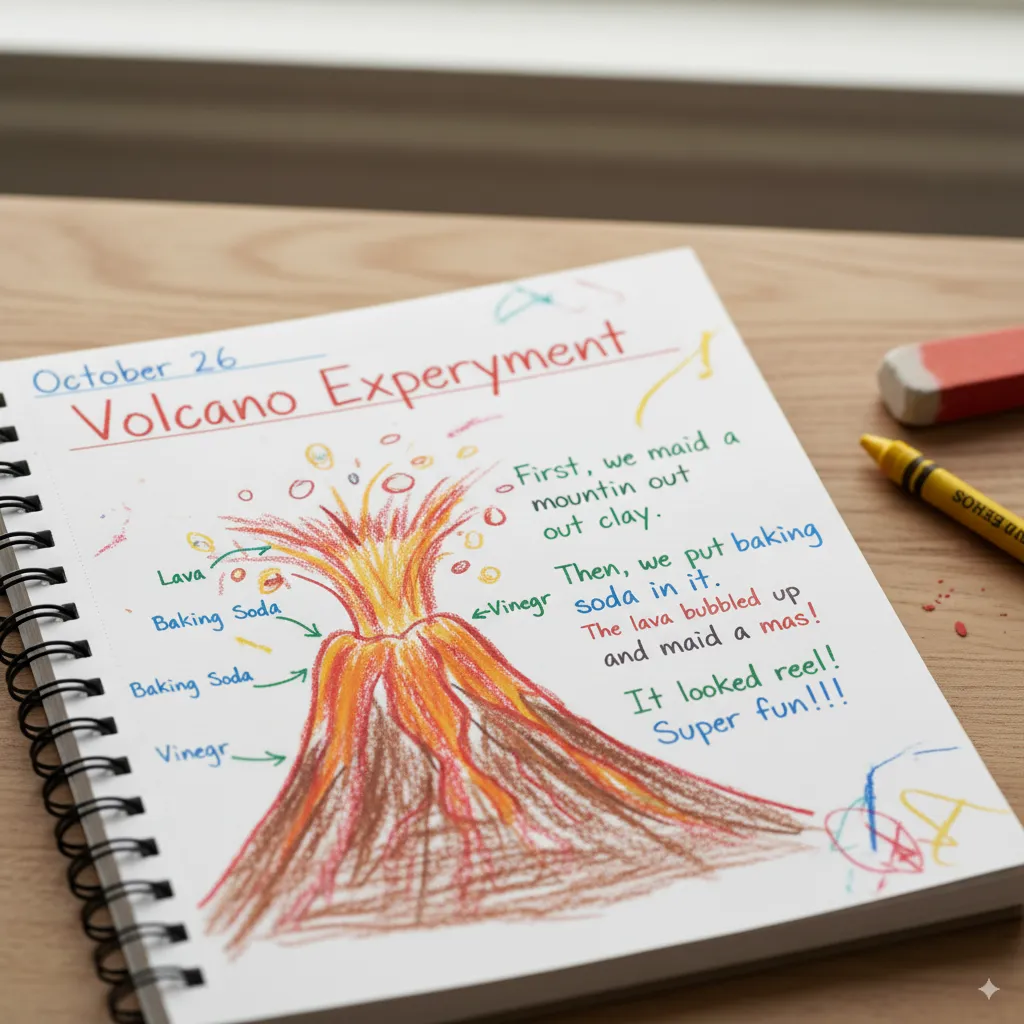 October 26
Volcano Experyment
Lava
Baking Soda
Baking Soda
Vinegr
Vinegr
First, we maid a
mountin out
out clay.
Then, we put baking
soda in it.
The lava bubbled up
and maid a mas!
It looked reel!
Super fun!!!